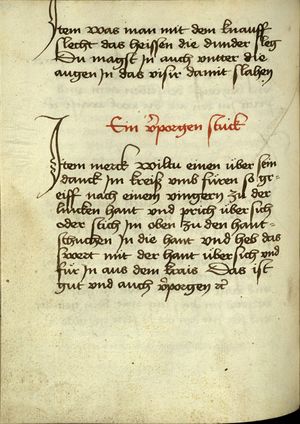 Item was man mit dem knauff
slecht das heissen die dunder sleg
Du magst in auch vntter die
augen in das visir damit slahen
Ein v̄porgen stuck
Item merck wiltu einen über sein
danck Im kreiß vmb füren so gr-
eiff nach einem vingern zu der
lincken hant vnd prich über sich
oder stich Im oben zu den hant-
schuchen In die hant vnd heb das
swert mit der hant über sich vnd
für In aus dem krais Das ist
gut vnd auch v̄porgen ꝛc